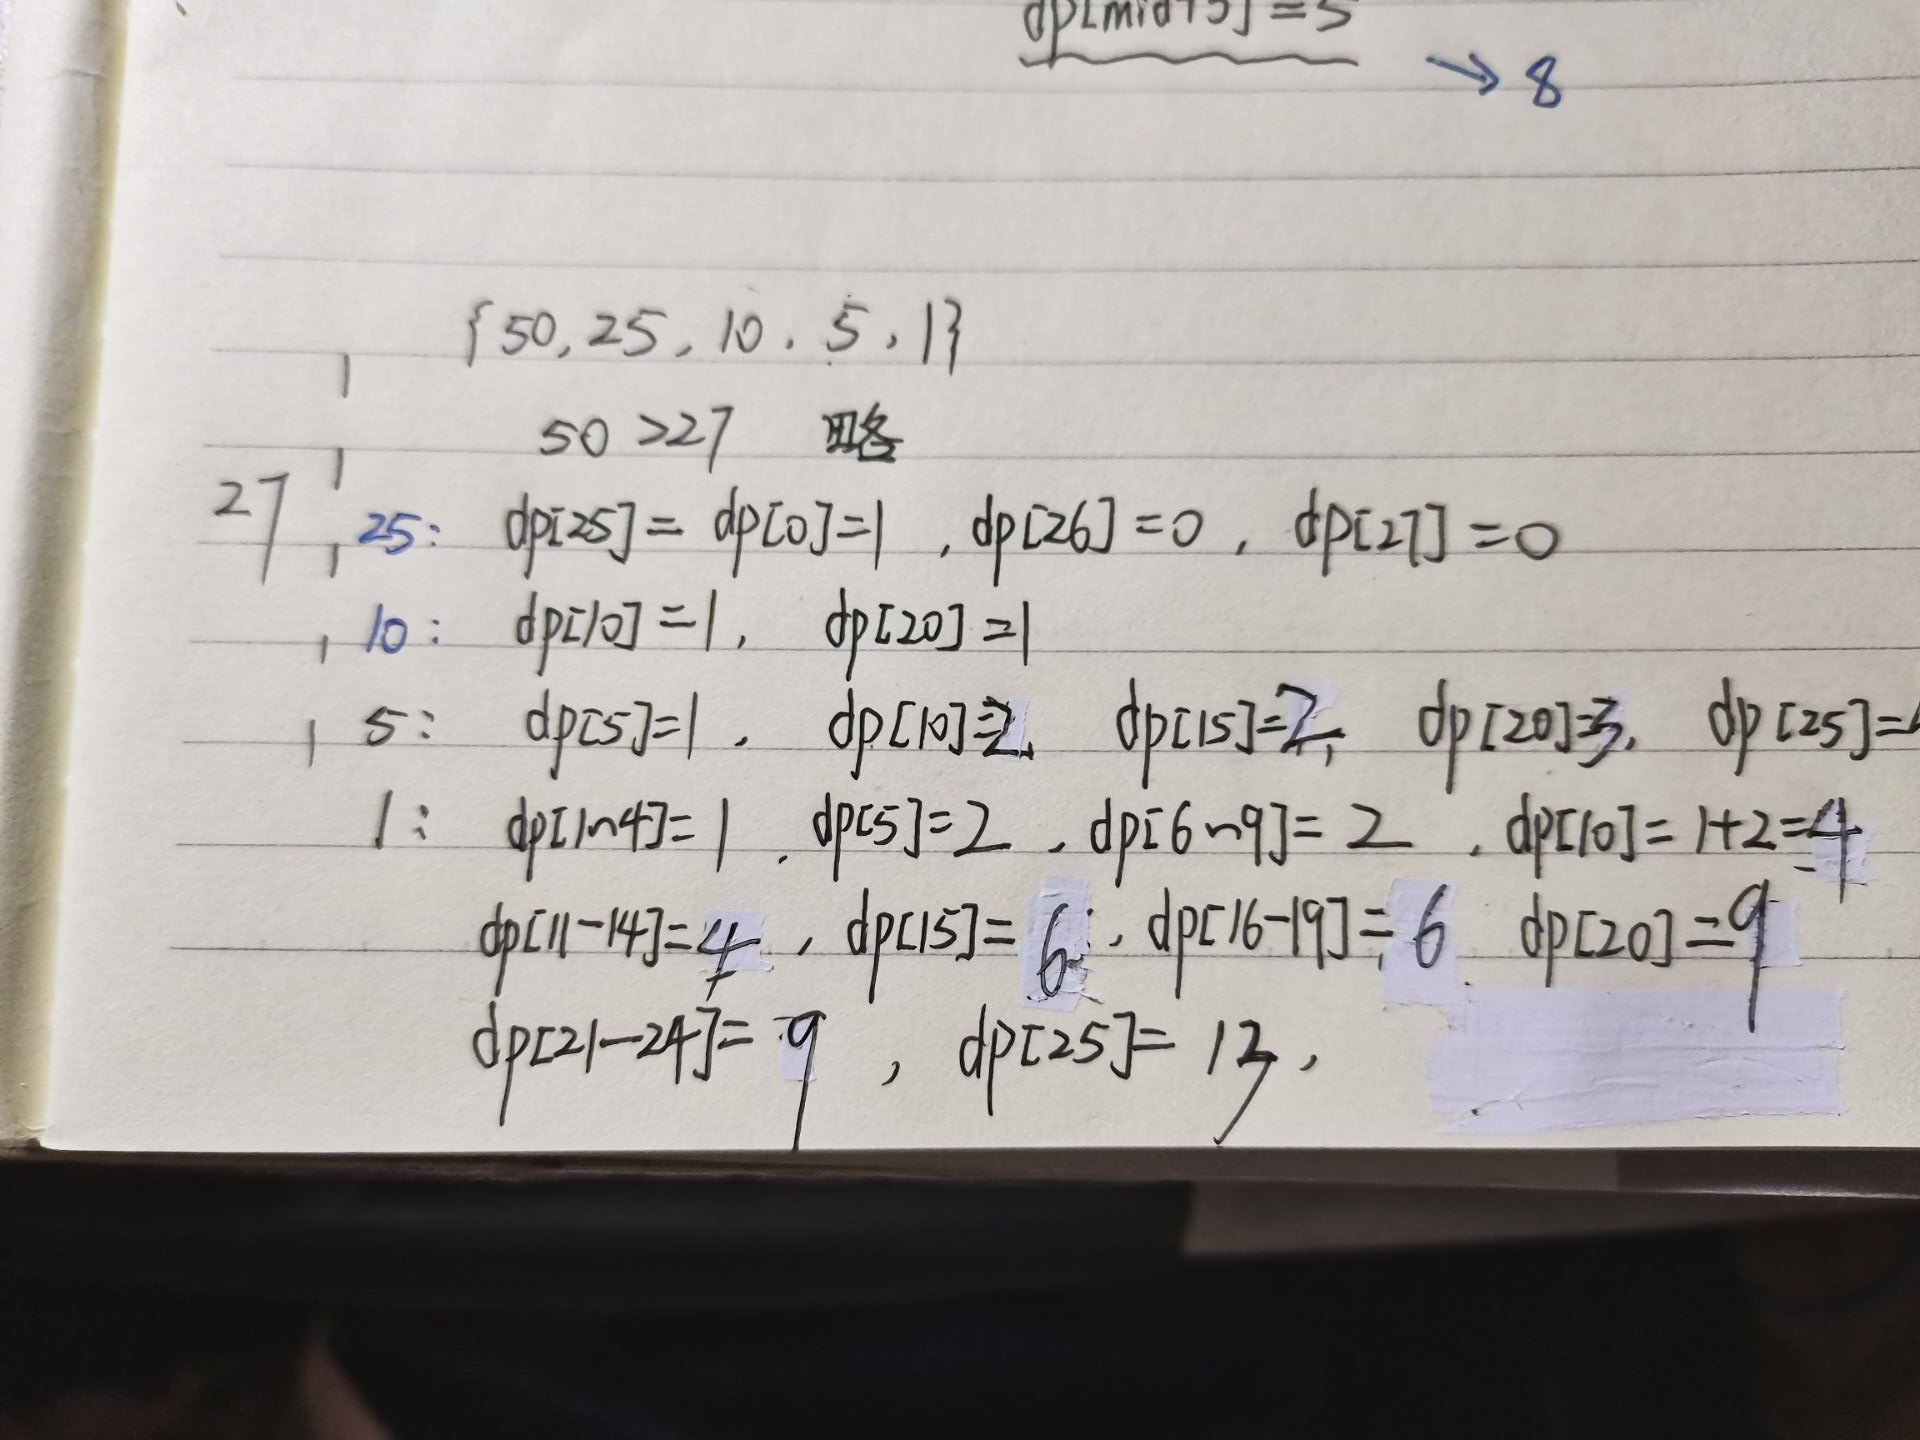 dp[mid+5]=5
→ 8
{50, 25, 10, 5, 1}
50 >27 略
27
25: dp[25]= dp[0]=1 , dp[26]=0 , dp[27]=0
10: dp[10]=1, dp[20]=1
5: dp[5]=1, dp[10]=2, dp[15]=2, dp[20]=3, dp[25]=
1: dp[1~4]=1, dp[5]=2, dp[6~9]=2, dp[10]=1+2=4
dp[11-14]=4, dp[15]=6, dp[16-19]=6 dp[20]=9
dp[21-24]=9, dp[25]=13,